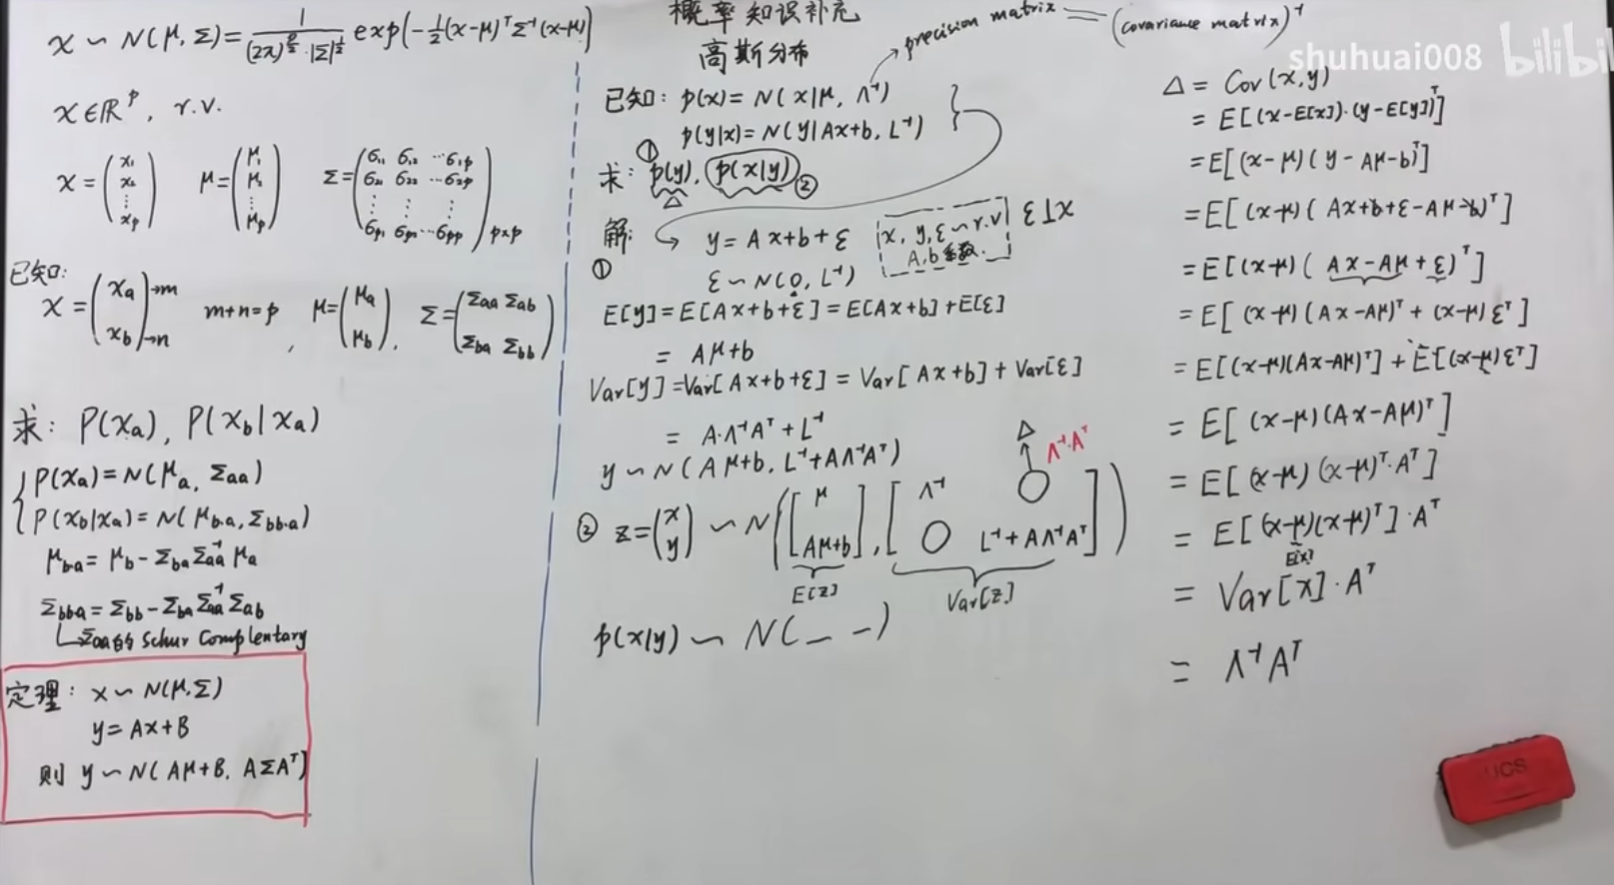 x ∼ N(μ, Σ) = 1/((2π)^{p/2}·|Σ|^{1/2}) exp(-½(x-μ)ᵀΣ⁻¹(x-μ))
x∈ℝᵖ, r.v.
x = (x₁ x₂ ⋮ x_p) μ = (μ₁ μ₂ ⋮ μ_p) Σ = (σ₁₁ σ₁₂ ⋯ σ₁p
σ₂₁ σ₂₂ ⋯ σ₂p
⋮ ⋮ ⋮
σp₁ σp₂ ⋯ σpp)p×p
已知:
x = (x_a →m
x_b →n) m+n=p, μ = (μ_a μ_b), Σ = (Σaa Σab
Σba Σbb)
求: P(x_a), P(x_b|x_a)
P(x_a) = N(μ_a, Σaa)
P(x_b|x_a) = N(μb·a, Σbb·a)
μb·a = μb - Σba Σaa⁻¹ μa
Σbb·a = Σbb - Σba Σaa⁻¹ Σab
↳ Σaa的 Schur Complentary
定理: x ∼ N(μ, Σ)
y = Ax+B
则 y ∼ N(Aμ+B, AΣAᵀ)
概率知识补充
高斯分布
precision matrix = (covariance matrix)⁻¹
已知: p(x) = N(x|μ, Λ⁻¹)
p(y|x) = N(y|Ax+b, L⁻¹)
求: ① p(y), p(x|y) ②
△
解: y = Ax+b+ε
x, y, ε ∼ r.v
A, b 系数.
ε⊥x
① ε ∼ N(0, L⁻¹)
E[y] = E[Ax+b+ε] = E[Ax+b] + E[ε]
= Aμ+b
Var[y] = Var[Ax+b+ε] = Var[Ax+b] + Var[ε]
= A·Λ⁻¹Aᵀ + L⁻¹
y ∼ N(Aμ+b, L⁻¹+AΛ⁻¹Aᵀ)
△ Λ⁻¹·Aᵀ
② z = (x y) ∼ N([μ
Aμ+b], [Λ⁻¹ ○
○ L⁻¹+AΛ⁻¹Aᵀ])
E[z] Var[z]
p(x|y) ∼ N(_ _)
△ = Cov(x,y)
= E[(x-E[x])·(y-E[y])ᵀ]
= E[(x-μ)(y-Aμ-b)ᵀ]
= E[(x-μ)(Ax+b+ε-Aμ-b)ᵀ]
= E[(x-μ)(Ax-Aμ+ε)ᵀ]
= E[(x-μ)(Ax-Aμ)ᵀ + (x-μ)εᵀ]
= E[(x-μ)(Ax-Aμ)ᵀ] + E[(x-μ)εᵀ]
= E[(x-μ)(Ax-Aμ)ᵀ]
= E[(x-μ)(x-μ)ᵀ·Aᵀ]
= E[(x-μ)(x-μ)ᵀ]·Aᵀ
E[x]
= Var[x]·Aᵀ
= Λ⁻¹Aᵀ
shuhuai008 bilibili
UCS